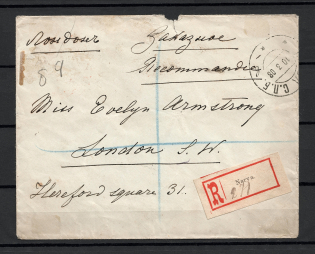 Лондонъ Заказное
84
Recommandée
Miss Evelyn Armstrong
London S.W.
Hereford square 31.
R